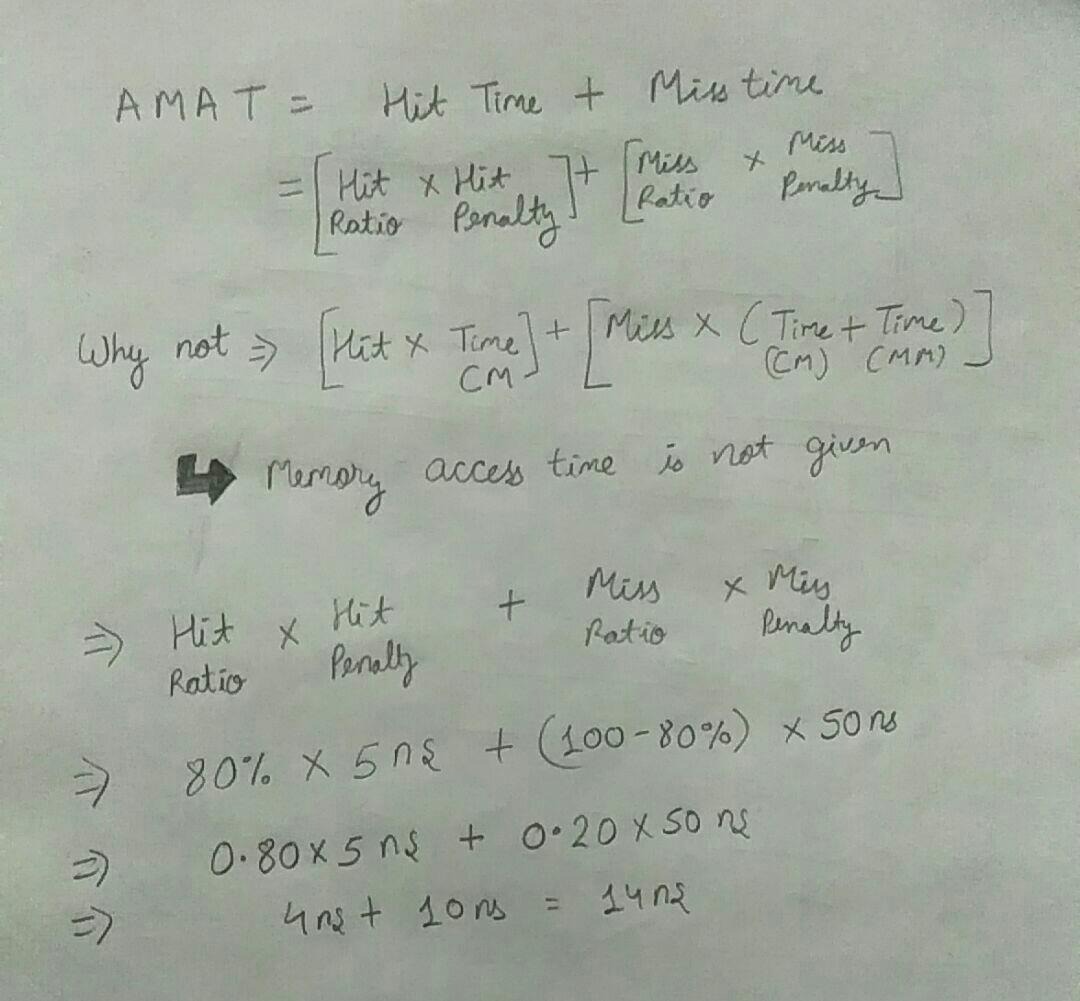 AMAT = Hit Time + Miss time
= [Hit Ratio x Hit Penalty] + [Miss Ratio x Miss Penalty]
Why not ⇒ [Hit x Time CM] + [Miss x (Time (CM) + Time (MM))]
↳ Memory access time is not given
⇒ Hit Ratio x Hit Penalty + Miss Ratio x Miss Penalty
⇒ 80% x 5 ns + (100-80%) x 50 ns
⇒ 0.80 x 5 ns + 0.20 x 50 ns
⇒ 4 ns + 10 ns = 14 ns